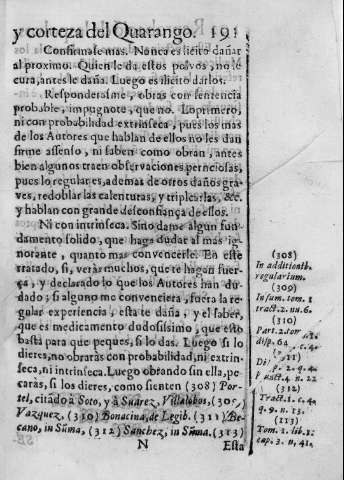 y corteza del Quarango. 191
Confirmase mas. No nos es licito dañar
al proximo. Quien le da estos polvos, no le
cura, antes le daña. Luego es ilicito darlos.
Responderasme, obras con sentencia
probable, impugnote, que no. Lo primero,
ni con probabilidad extrinseca, pues los mas
de los Autores que hablan de ellos no les dan
firme assenso, ni saben como obran, antes
bien algunos traen observaciones perniciosas,
pues lo regular es, ademas de otros daños gra
ves, redoblar las calenturas, y triplesrlas, &c.
y hablan con grande desconfiança de ellos.
Ni con intrinseca. Sino dame algun fun
damento solido, que haga dudar al mas ig
norante, quanto mas convencerle. En este
tratado, si, veràs muchos, que te hagan fuer
ça, y declarado lo que los Autores han du
dado; si alguno me convenciera, fuera la re
gular experiencia, esta te daña, y el saber,
que es medicamento dudosissimo, que esto
basta para que peques, si lo das. Luego si lo
dieres, no obraràs con probabilidad, ni extrin
seca, ni intrinseca. Luego obrando sin ella, pe
caràs, si los dieres, como sienten (308) Por
tel, citado à Soto, y à Suarez, Villalobos, (309)
Vazquez, (310) Bonacina, de Legib. (311) Be
cano, in Sūma, (312) Sanchez, in Sūma. (313)
N Esta
(308)
In additionib.
regularium.
(309)
In sum. tom. 1
tract. 2. nu. 6.
(310)
Part. 2. tom
disp. 64 c. 4.
(311)
p. 2. q. 4.
punct. 4 n. 22
(312)
Tract. 1. c. 4.
q. 9. n. 13.
(313)
Tom. 1. lib. 1.
cap. 3. n. 41.